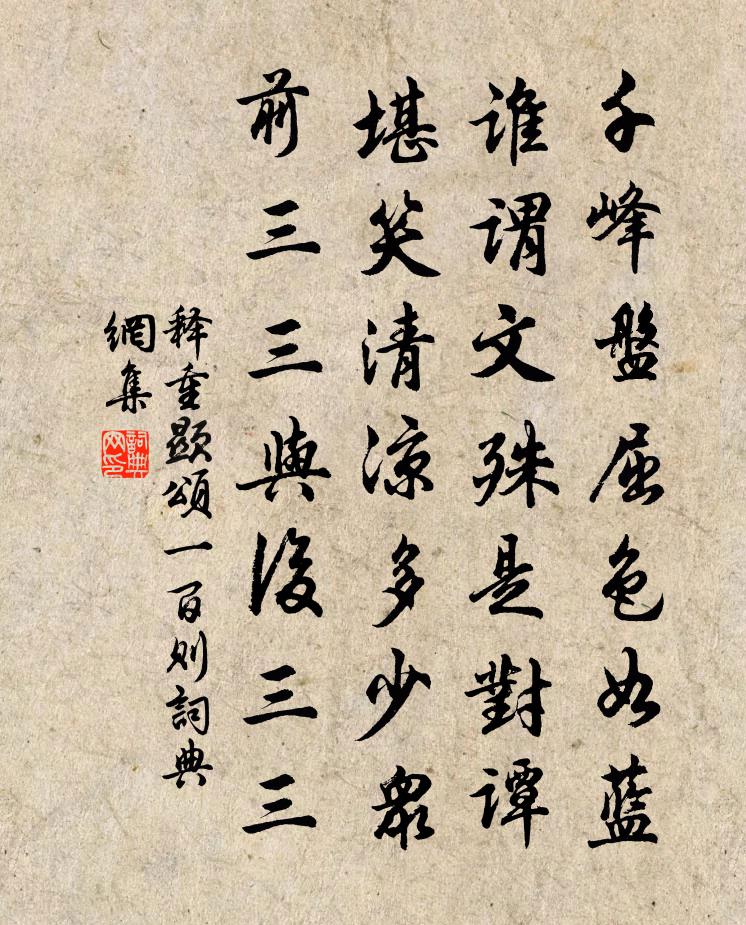 千峰盤屈色如藍
誰謂文殊是對譚
堪笑清涼多少眾
前三三與後三三
释重顯頌一百则詞典
網集
詞典
网印